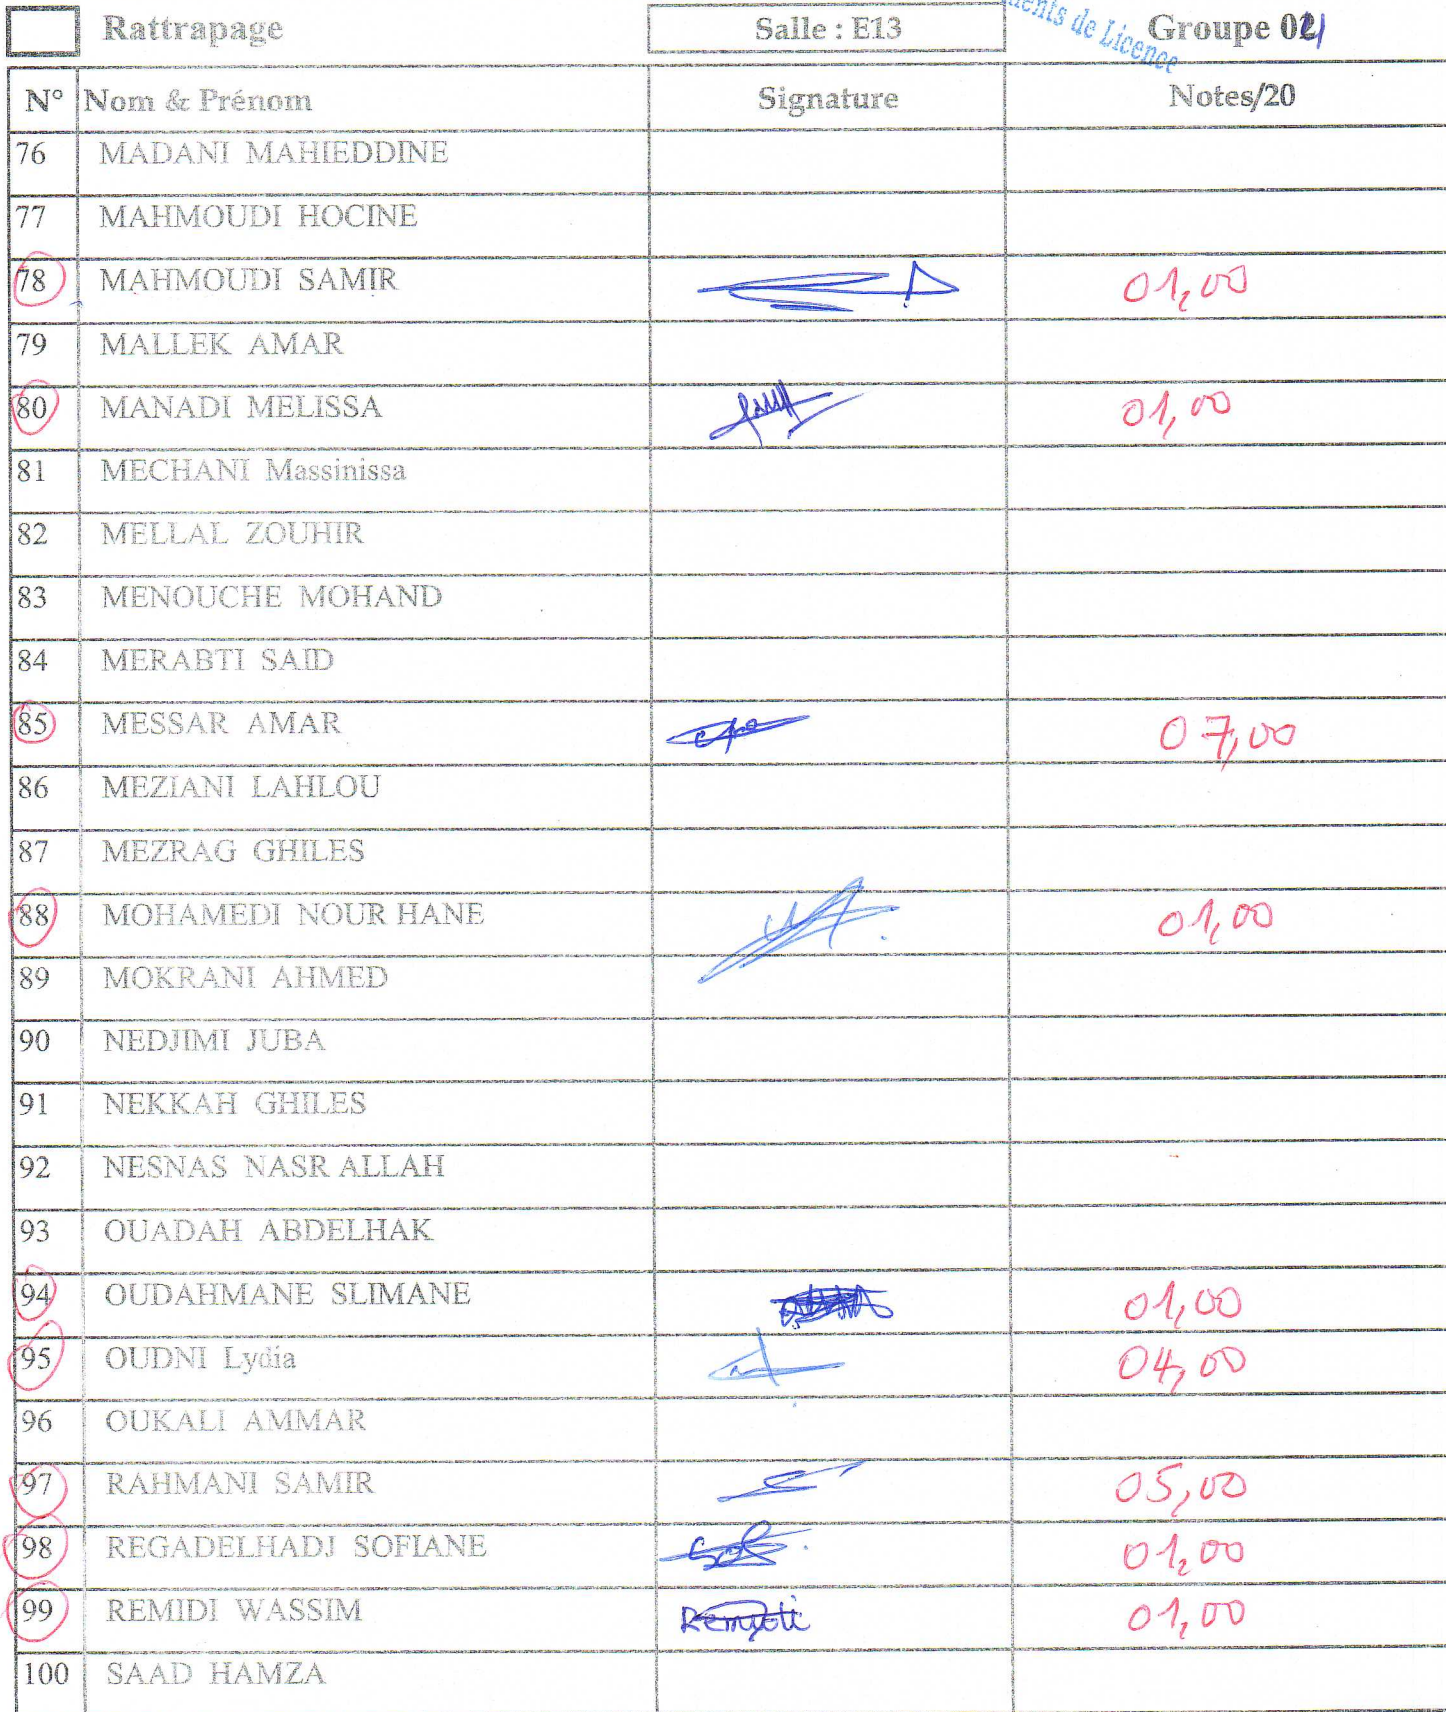 ments de Licence
Rattrapage Salle : E13 Groupe 04
N° Nom & Prénom Signature Notes/20
76 MADANI MAHIEDDINE
77 MAHMOUDI HOCINE
78 MAHMOUDI SAMIR 01,00
79 MALLEK AMAR
80 MANADI MELISSA 01,00
81 MECHANI Massinissa
82 MELLAL ZOUHIR
83 MENOUCHE MOHAND
84 MERABTI SAID
85 MESSAR AMAR 07,00
86 MEZIANI LAHLOU
87 MEZRAG GHILES
88 MOHAMEDI NOUR HANE 01,00
89 MOKRANI AHMED
90 NEDJIMI JUBA
91 NEKKAH GHILES
92 NESNAS NASR ALLAH
93 OUADAH ABDELHAK
94 OUDAHMANE SLIMANE 01,00
95 OUDNI Lydia 04,00
96 OUKALI AMMAR
97 RAHMANI SAMIR 05,00
98 REGADELHADJ SOFIANE 01,00
99 REMIDI WASSIM 01,00
100 SAAD HAMZA